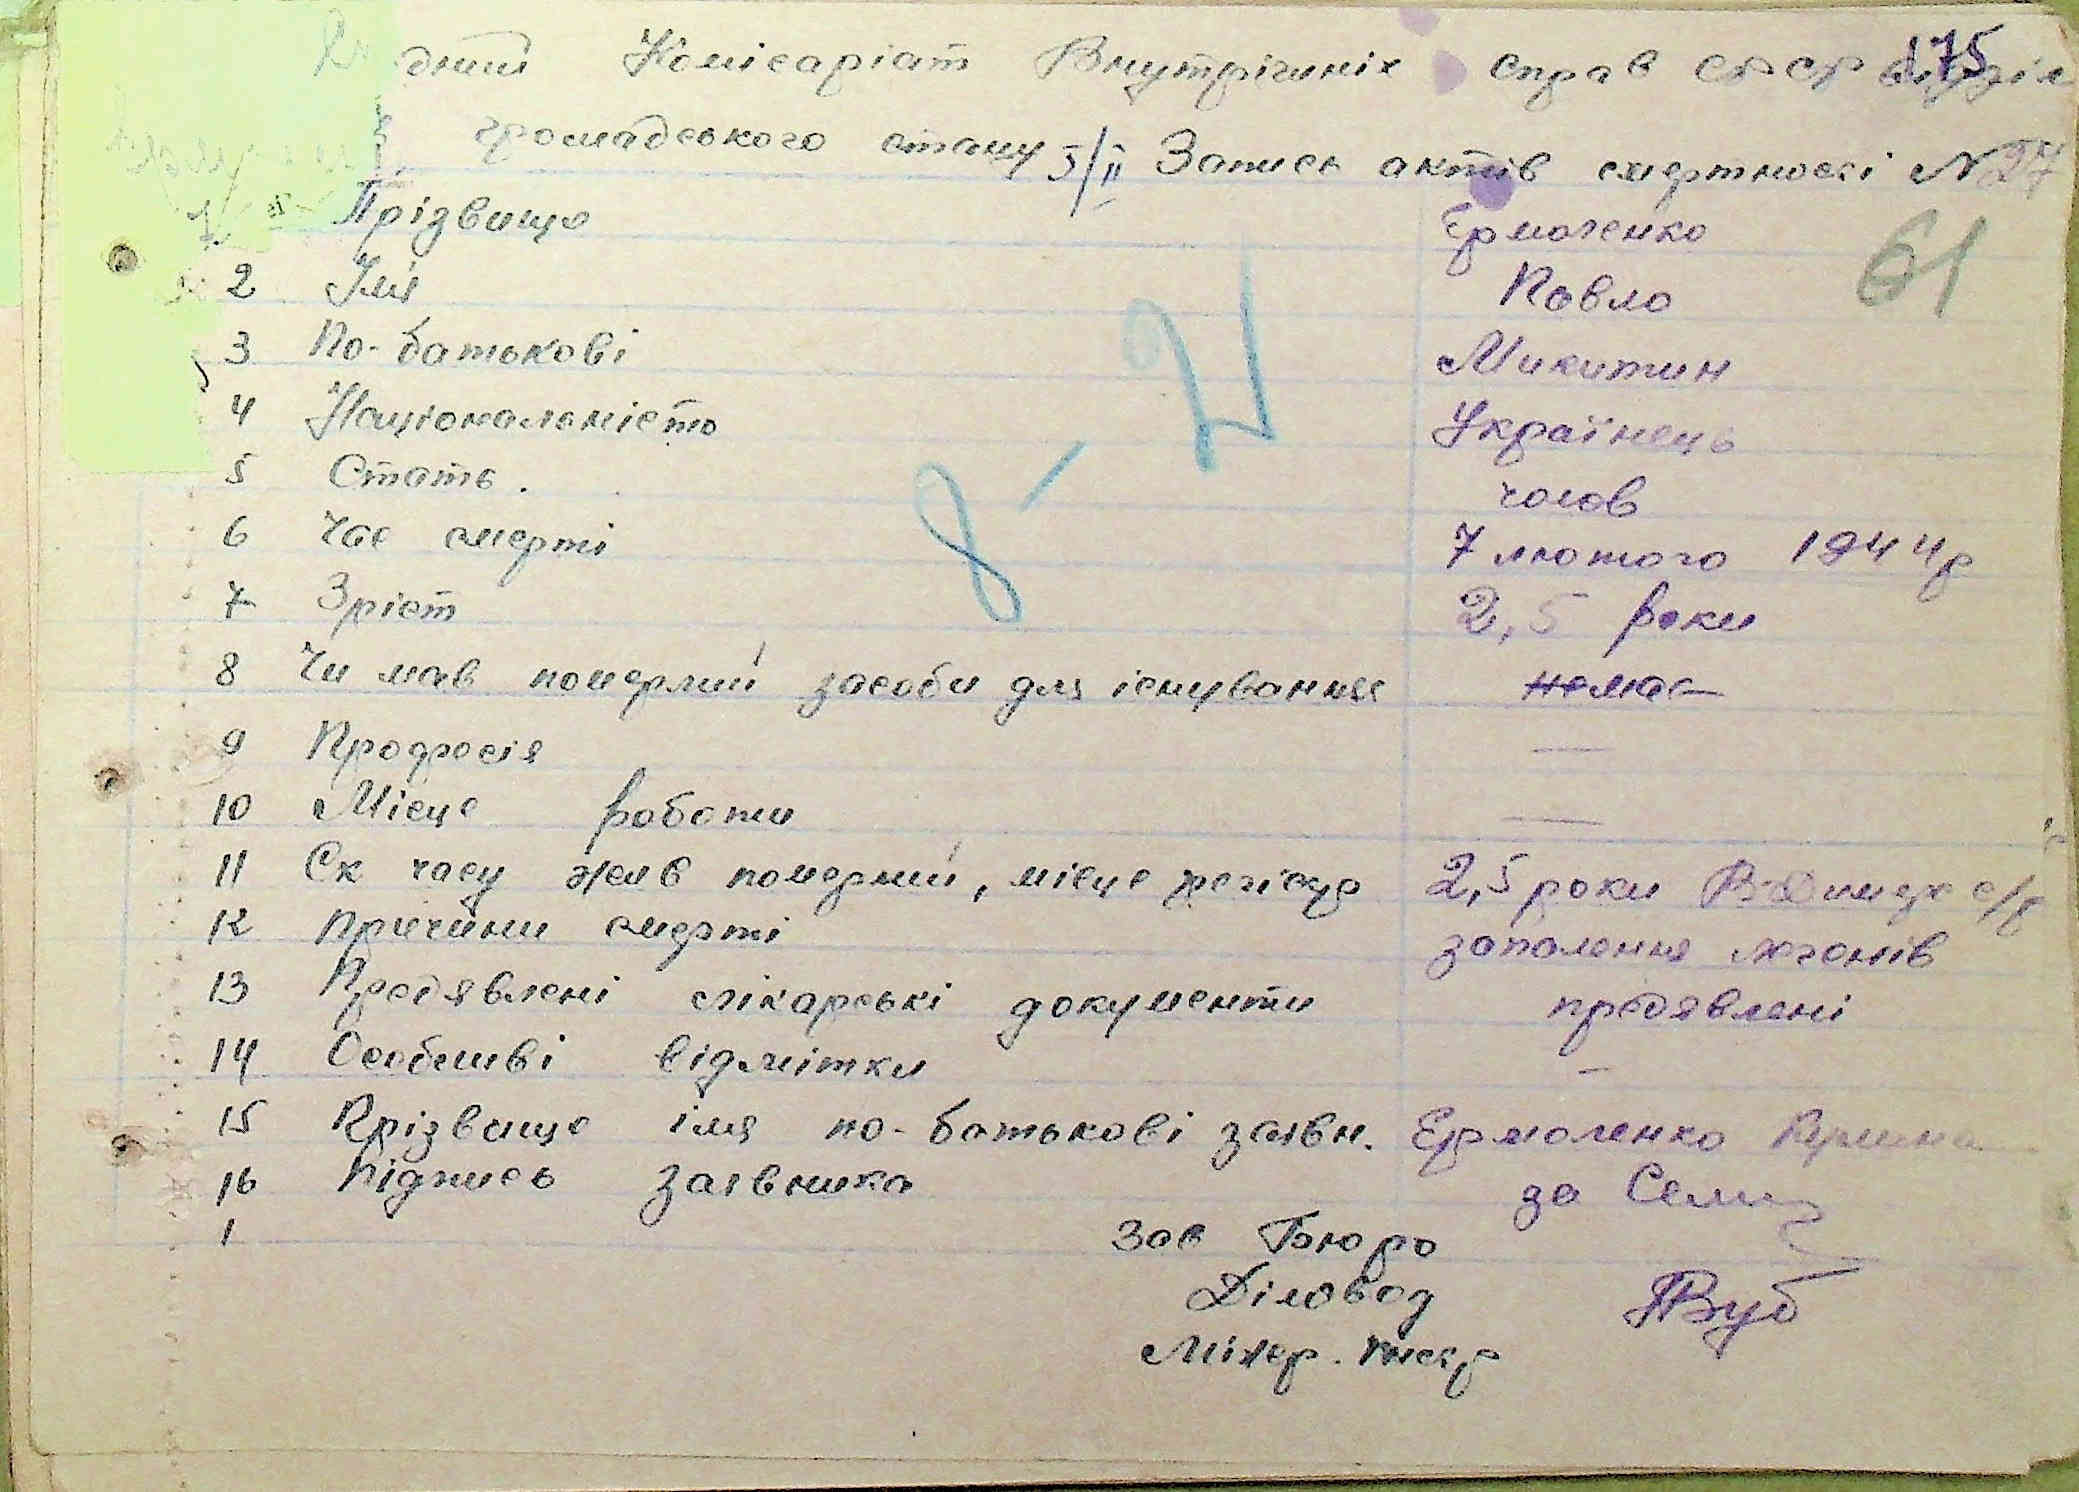 175
дний Комісаріат Внутрішніх справ СРСР відділ
громадського стану 5/II Запись актів смертності № 27
61
8 - 2
1 Прізвище Ермоленко
2 Імя Павло
3 По-батькові Микитин
4 Національність Українець
5 Стать. чолов
6 Час смерті 7 лютого 1944р
7 Зріст 2,5 роки
8 Чи мав померлий засоби для існування немає
9 Професія —
10 Місце роботи —
11 Ск часу жив померлий, місце 2,5 роки В-Димер с/р
12 Причини смерті запалення легенів
13 Предявлені лікарські документи предявлені
14 Особливі відмітки —
15 Прізвище імя по-батькові заявн. Ермоленко
16 Підпись заявника за
1
Зав Бюро
Діловод